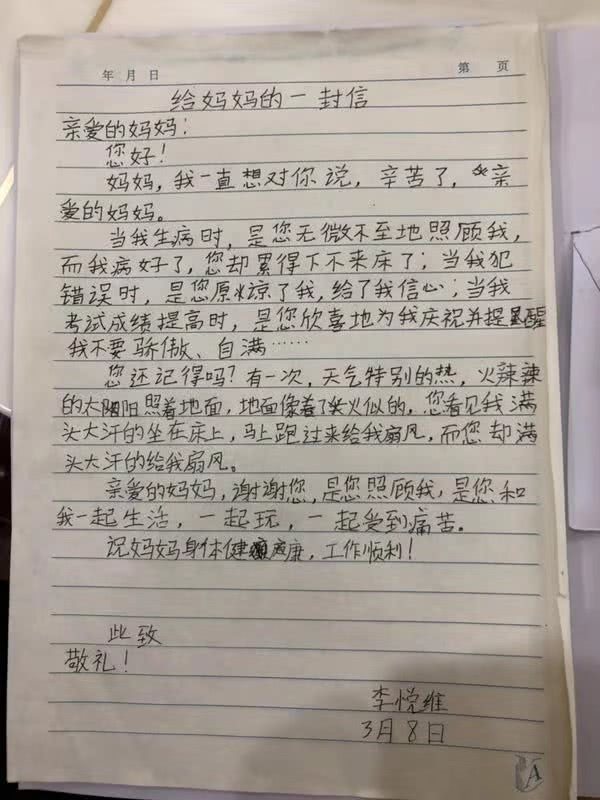 年 月 日 第 页
给妈妈的一封信
亲爱的妈妈：
您好！
妈妈，我一直想对你说，辛苦了，亲
爱的妈妈。
当我生病时，是您无微不至地照顾我，
而我病好了，您却累得下不来床了；当我犯
错误时，是您原谅了我，给了我信心；当我
考试成绩提高时，是您欣喜地为我庆祝并提醒
我不要骄傲、自满……
您还记得吗？有一次，天气特别的热，火辣辣
的太阳照着地面，地面像着了火似的，您看见我满
头大汗的坐在床上，马上跑过来给我扇风，而您却满
头大汗的给我扇风。
亲爱的妈妈，谢谢您，是您照顾我，是您和
我一起生活，一起玩，一起受到痛苦。
祝妈妈身体健康，工作顺利！
此致
敬礼！
李悦维
3月8日